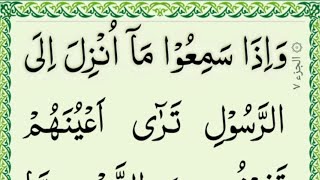 وَاِذَا سَمِعُوْا مَآ اُنْزِلَ اِلَى
الرَّسُوْلِ تَرٰٓى اَعْيُنَهُمْ
الجزء ٧